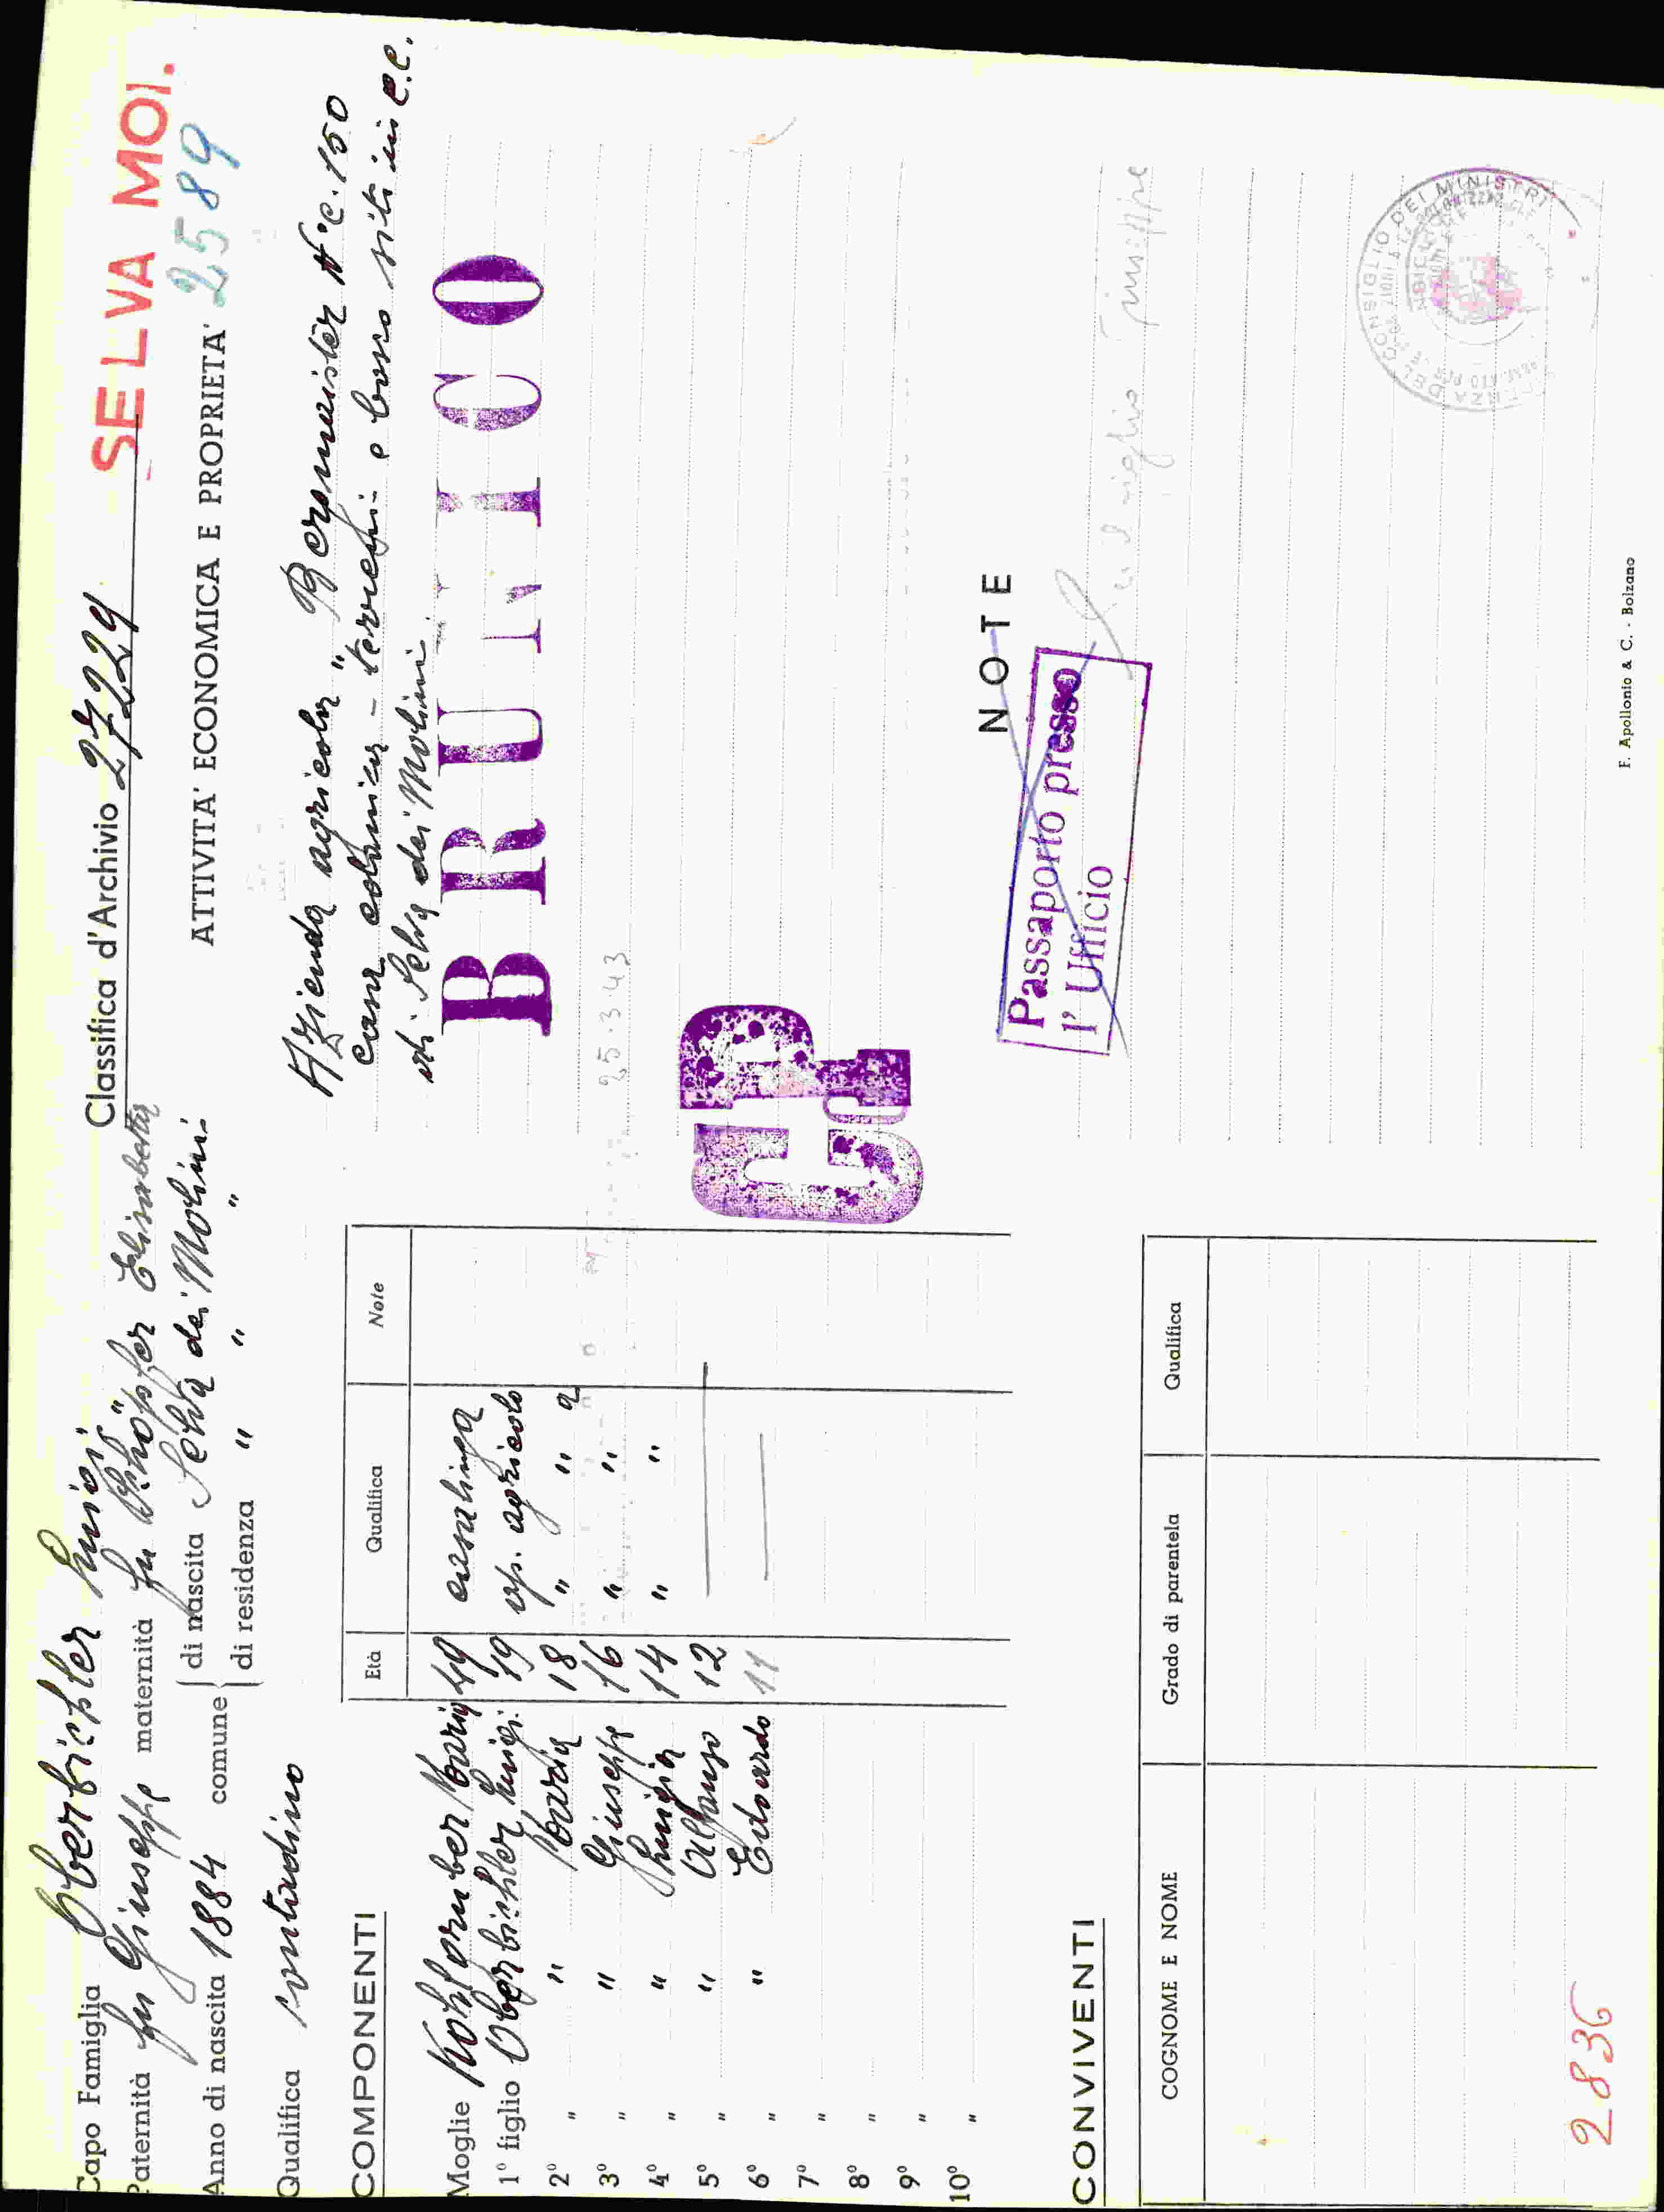 Capo Famiglia Oberbichler Luigi
Classifica d'Archivio 27229
SELVA MOL.
Paternità fu Giuseppe maternità fu Schöpfer Elisabetta
Anno di nascita 1884 comune di nascita Selva dei Molini
di residenza " " "
Qualifica contadino
COMPONENTI
Età Qualifica Note
Moglie Kohlgruber Maria 49 casalinga
1° figlio Oberbichler Luigi 19 op. agricolo
2° " " Maria 18 " " a
3° " " Giuseppe 16 " "
4° " " Luigia 14 " "
5° " " Alfonso 12
6° " " Edoardo 11
7° "
8° "
9° "
10° "
CONVIVENTI
COGNOME E NOME Grado di parentela Qualifica
2836
ATTIVITA' ECONOMICA E PROPRIETA' 2589
Azienda agricola "
N° C. 150
casa colonica - terreni e bosco siti in C.C.
di Selva dei Molini
BRUNICO
25.3.43
NOTE
Passaporto presso
l'Ufficio
Giuseppe
CONSIGLIO DEI MINISTRI
F. Apollonio & C. - Bolzano